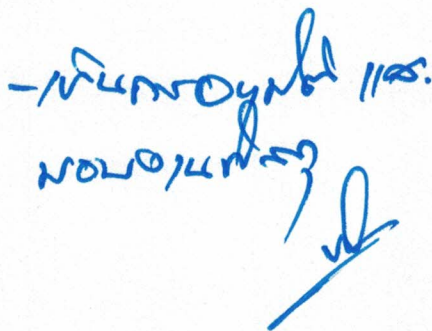 - เห็นควรอนุมัติ และ
มอบงานพัสดุ